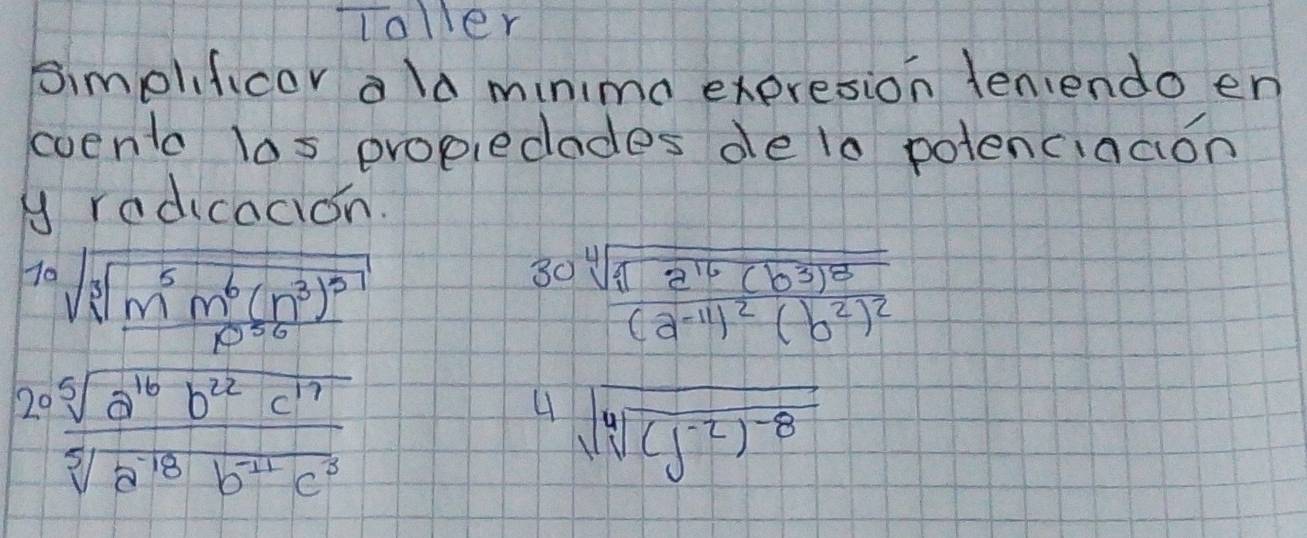 Taller
Simplificar a la minima expresión teniendo en
cuenta las propiedades de la potenciación
y radicación.
1º √∛ m⁵ m⁶ (n³)⁵ / p³⁶
3º ⁴√ a¹⁶ (b³)⁸ / (a⁻¹¹)² (b²)²
2º ⁵√ a¹⁶ b²² c¹⁷ / ⁵√ a⁻¹⁸ b⁻¹¹ c³
4 √⁴√ (j⁻²)⁻⁸